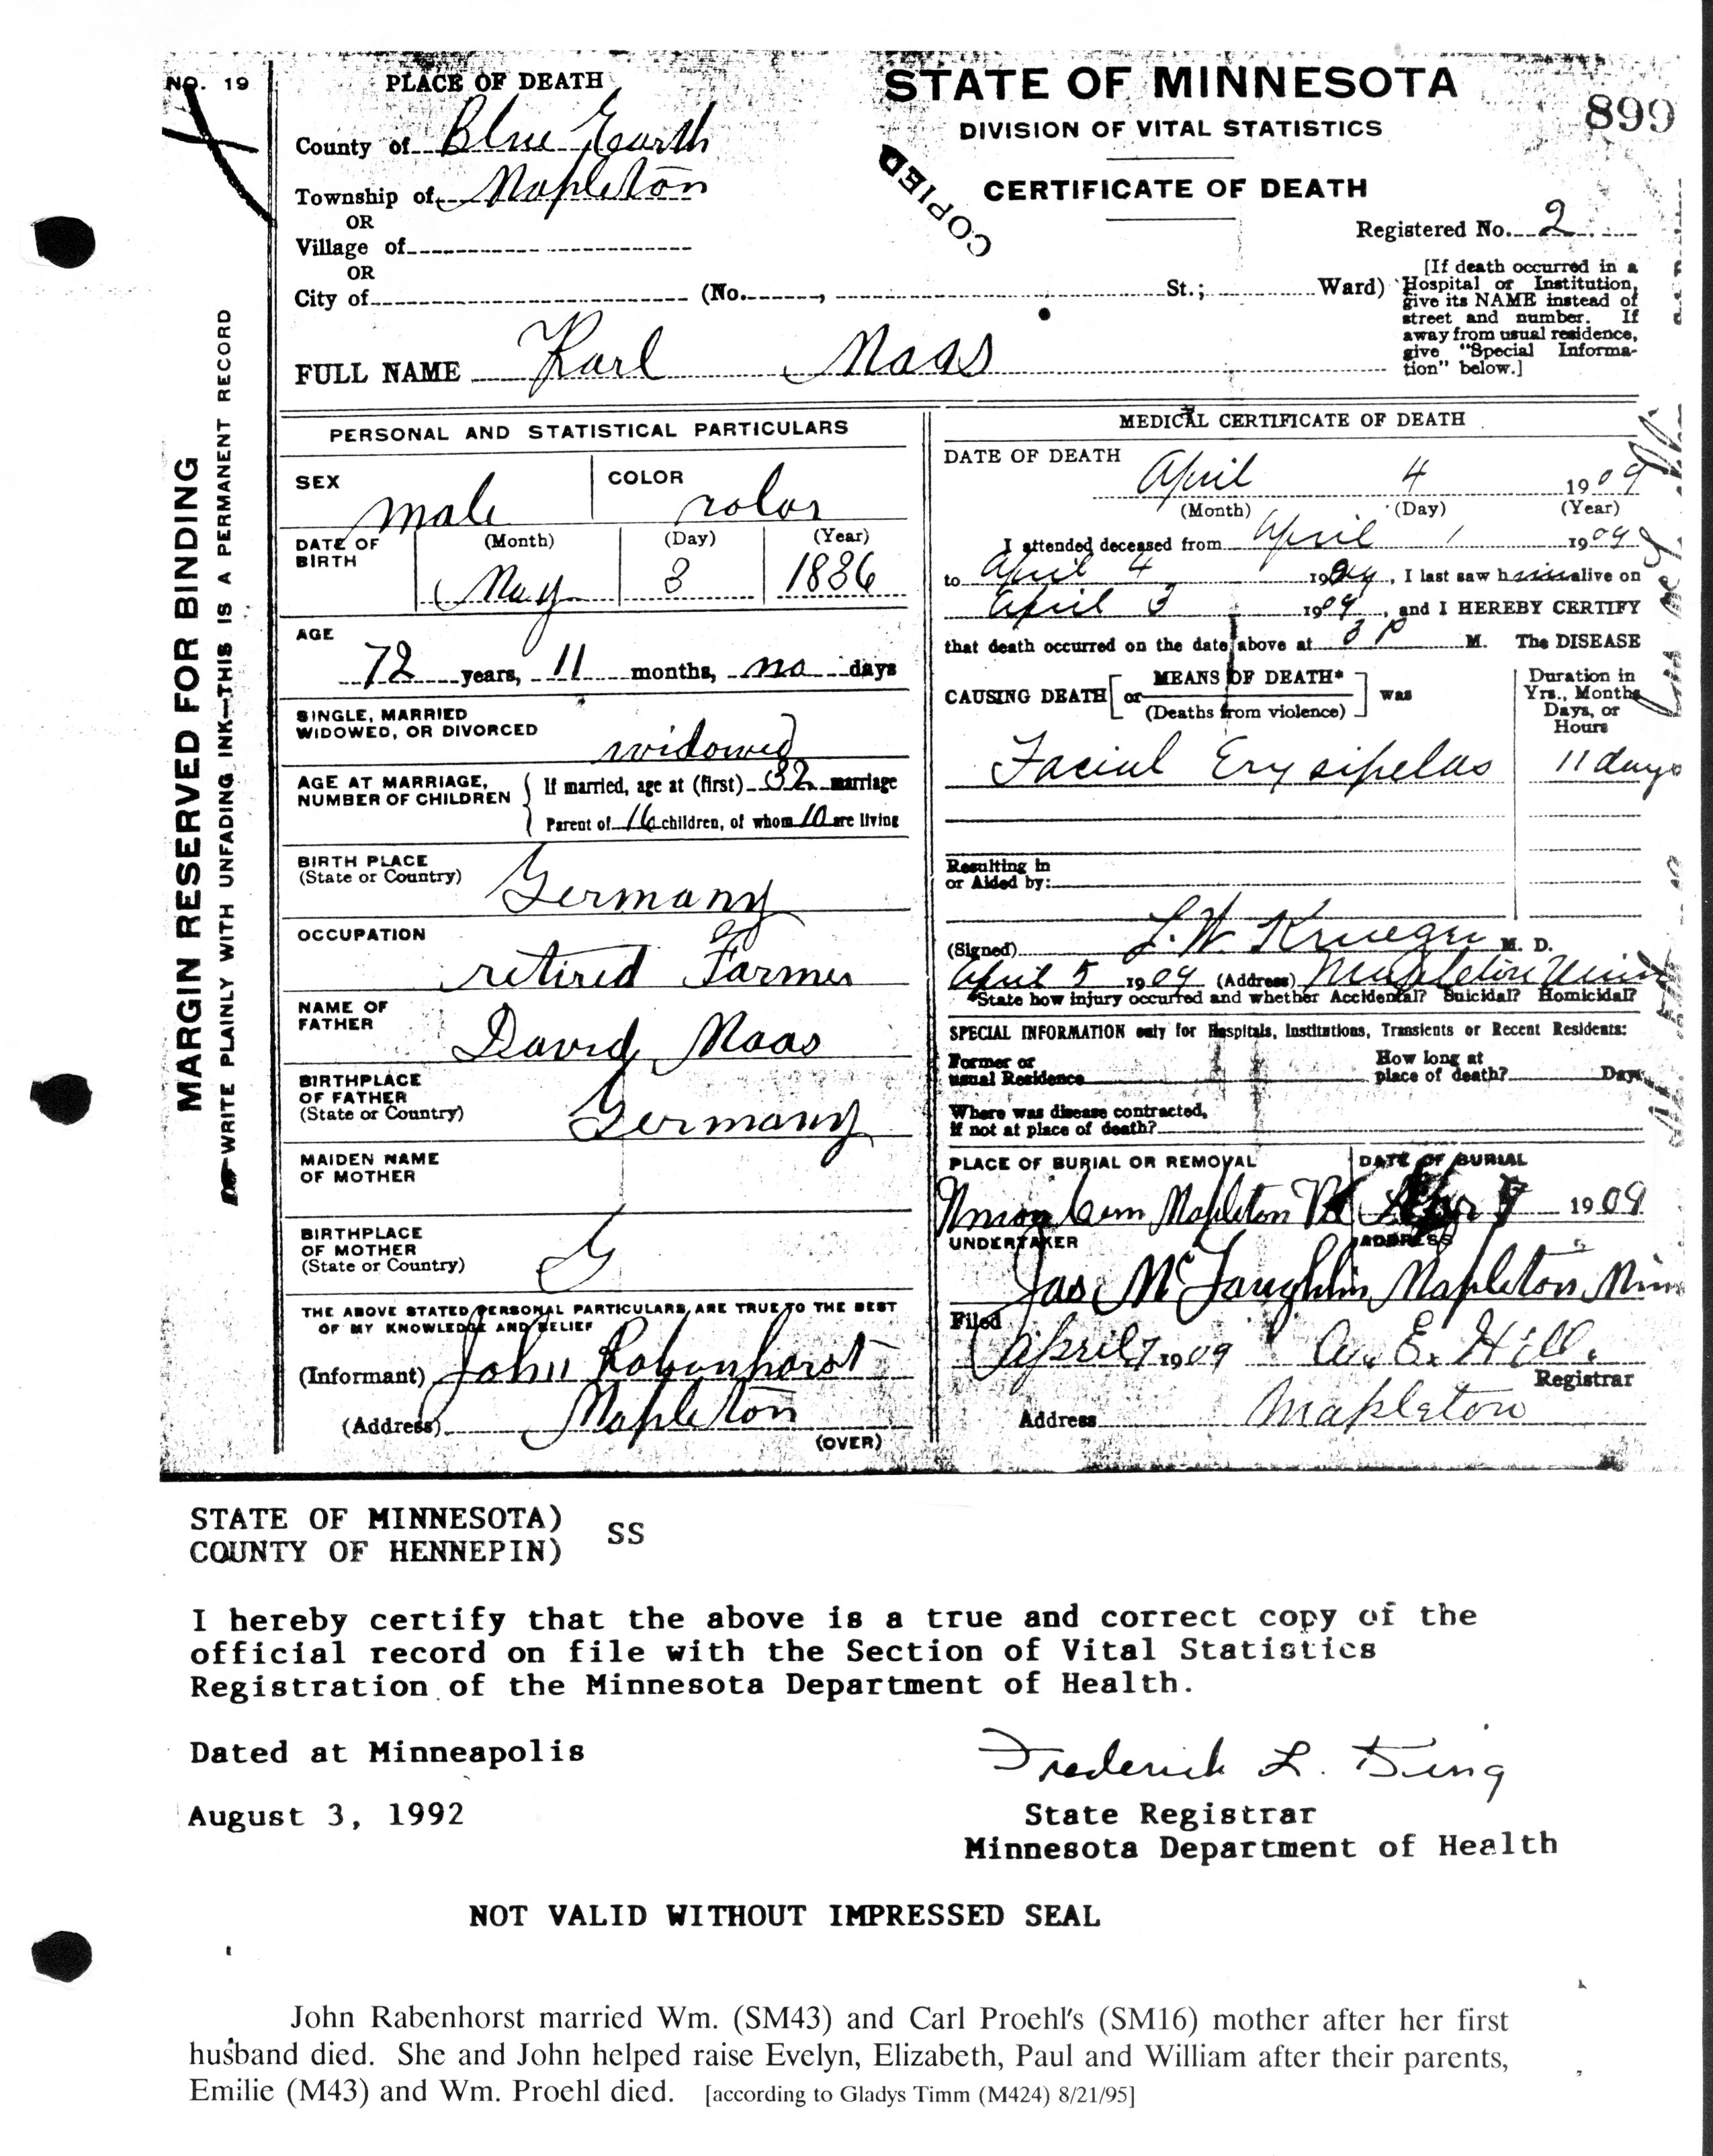 NO. 19
PLACE OF DEATH
County of Blue Earth
Township of Mapleton
OR
Village of
OR
City of (No. , St.; Ward)
STATE OF MINNESOTA
DIVISION OF VITAL STATISTICS
899
COPIED
CERTIFICATE OF DEATH
Registered No. 2
[If death occurred in a
Hospital or Institution,
give its NAME instead of
street and number. If
away from usual residence,
give "Special Informa-
tion" below.]
FULL NAME Karl Maas
MARGIN RESERVED FOR BINDING
WRITE PLAINLY WITH UNFADING INK—THIS IS A PERMANENT RECORD
PERSONAL AND STATISTICAL PARTICULARS
SEX male
COLOR color
DATE OF BIRTH
(Month) (Day) (Year)
May 3 1836
AGE
72 years, 11 months, no days
SINGLE, MARRIED
WIDOWED, OR DIVORCED
widowed
AGE AT MARRIAGE,
NUMBER OF CHILDREN
If married, age at (first) 32 marriage
Parent of 16 children, of whom 10 are living
BIRTH PLACE
(State or Country)
Germany
OCCUPATION
retired Farmer
NAME OF
FATHER
David Maas
BIRTHPLACE
OF FATHER
(State or Country)
Germany
MAIDEN NAME
OF MOTHER
BIRTHPLACE
OF MOTHER
(State or Country)
G
THE ABOVE STATED PERSONAL PARTICULARS ARE TRUE TO THE BEST
OF MY KNOWLEDGE AND BELIEF
(Informant) John Rabenhorst
(Address) Mapleton
(OVER)
MEDICAL CERTIFICATE OF DEATH
DATE OF DEATH
April 4 1909
(Month) (Day) (Year)
I attended deceased from April 1 1909
to April 4 1909, I last saw him alive on
April 3 1909, and I HEREBY CERTIFY
that death occurred on the date above at 3 P M. The DISEASE
CAUSING DEATH [or MEANS OF DEATH* (Deaths from violence)] was
Duration in
Yrs., Months
Days, or
Hours
Facial Erysipelas 11 days
Resulting in
or Aided by:
(Signed) L. W. Krueger M. D.
April 5 1909 (Address) Mapleton Minn
*State how injury occurred and whether Accidental? Suicidal? Homicidal?
SPECIAL INFORMATION only for Hospitals, Institutions, Transients or Recent Residents:
Former or
usual Residence
How long at
place of death? Days
Where was disease contracted,
if not at place of death?
PLACE OF BURIAL OR REMOVAL
DATE OF BURIAL
Union Cem Mapleton 1909
UNDERTAKER
ADDRESS
Jas McLaughlin Mapleton, Minn
Filed
April 7 1909 E. Hill.
Registrar
Address Mapleton
STATE OF MINNESOTA)
COUNTY OF HENNEPIN) SS
I hereby certify that the above is a true and correct copy of the
official record on file with the Section of Vital Statistics
Registration of the Minnesota Department of Health.
Dated at Minneapolis
August 3, 1992
Frederick L. King
State Registrar
Minnesota Department of Health
NOT VALID WITHOUT IMPRESSED SEAL
John Rabenhorst married Wm. (SM43) and Carl Proehl's (SM16) mother after her first
husband died. She and John helped raise Evelyn, Elizabeth, Paul and William after their parents,
Emilie (M43) and Wm. Proehl died. [according to Gladys Timm (M424) 8/21/95]